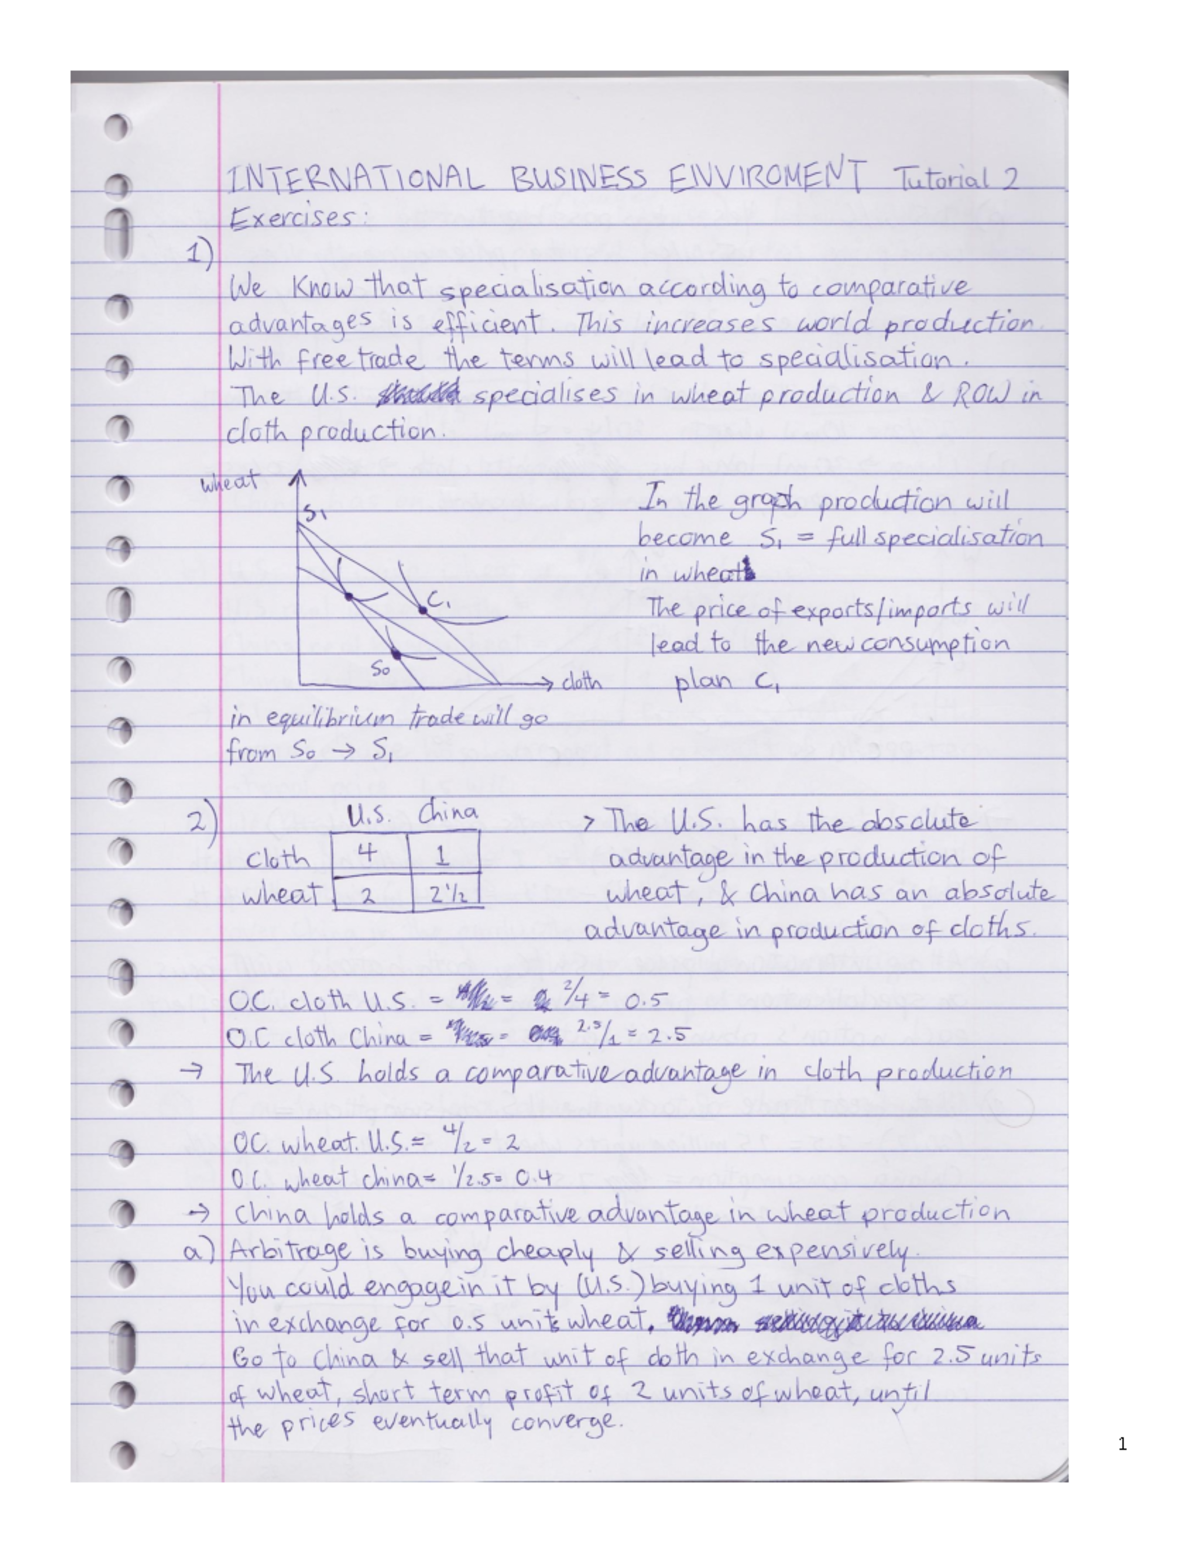 INTERNATIONAL BUSINESS ENVIROMENT Tutorial 2
Exercises:
1)
We know that specialisation according to comparative
advantages is efficient. This increases world production.
With free trade the terms will lead to specialisation.
The U.S. specialises in wheat production & ROW in
cloth production.
wheat
S₁
C₁
S₀
cloth
In the graph production will
become S₁ = full specialisation
in wheat
The price of exports/imports will
lead to the new consumption
plan C₁
in equilibrium trade will go
from S₀ → S₁
2)
U.S. China
cloth 4 1
wheat 2 2½
> The U.S. has the absolute
advantage in the production of
wheat, & China has an absolute
advantage in production of cloths.
O.C. cloth U.S. = = 2/4 = 0.5
O.C cloth China = = 2.5/1 = 2.5
→ The U.S. holds a comparative advantage in cloth production
OC. wheat. U.S. = 4/2 = 2
O.C. wheat china = 1/2.5 = 0.4
→ China holds a comparative advantage in wheat production
a) Arbitrage is buying cheaply & selling expensively.
You could engage in it by (U.S.) buying 1 unit of cloths
in exchange for 0.5 units wheat.
Go to China & sell that unit of cloth in exchange for 2.5 units
of wheat, short term profit of 2 units of wheat, until
the prices eventually converge.
1